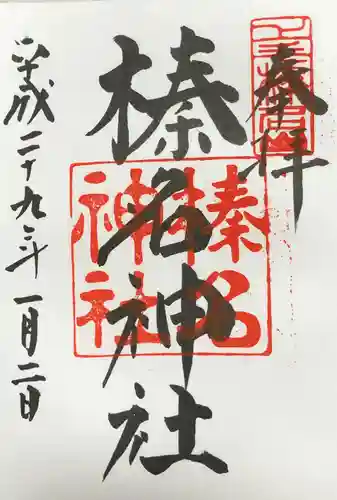 奉拝
榛名神社
榛名神社
平成二十九年一月二日